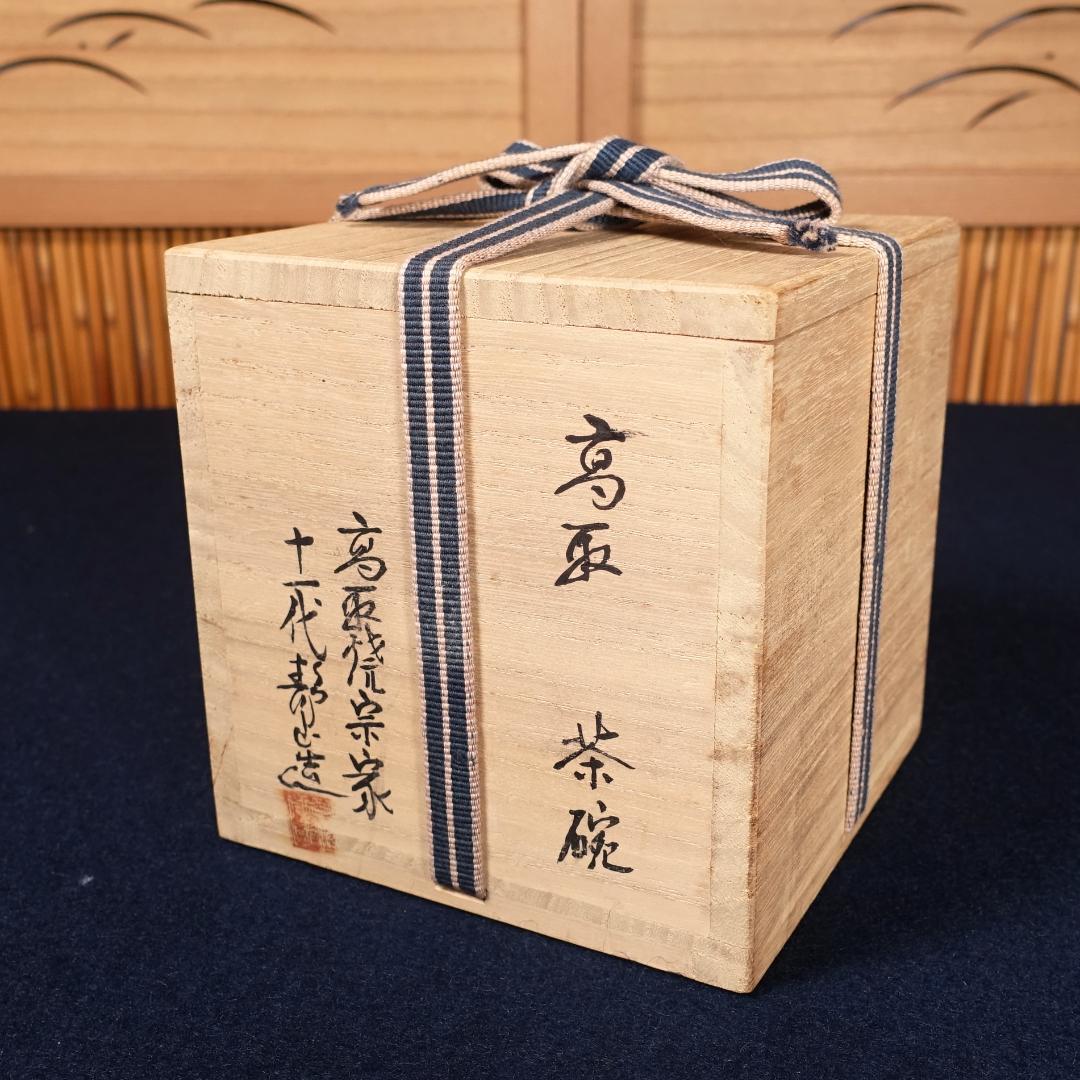 高取 茶碗
高取焼宗家
十一代 静山造